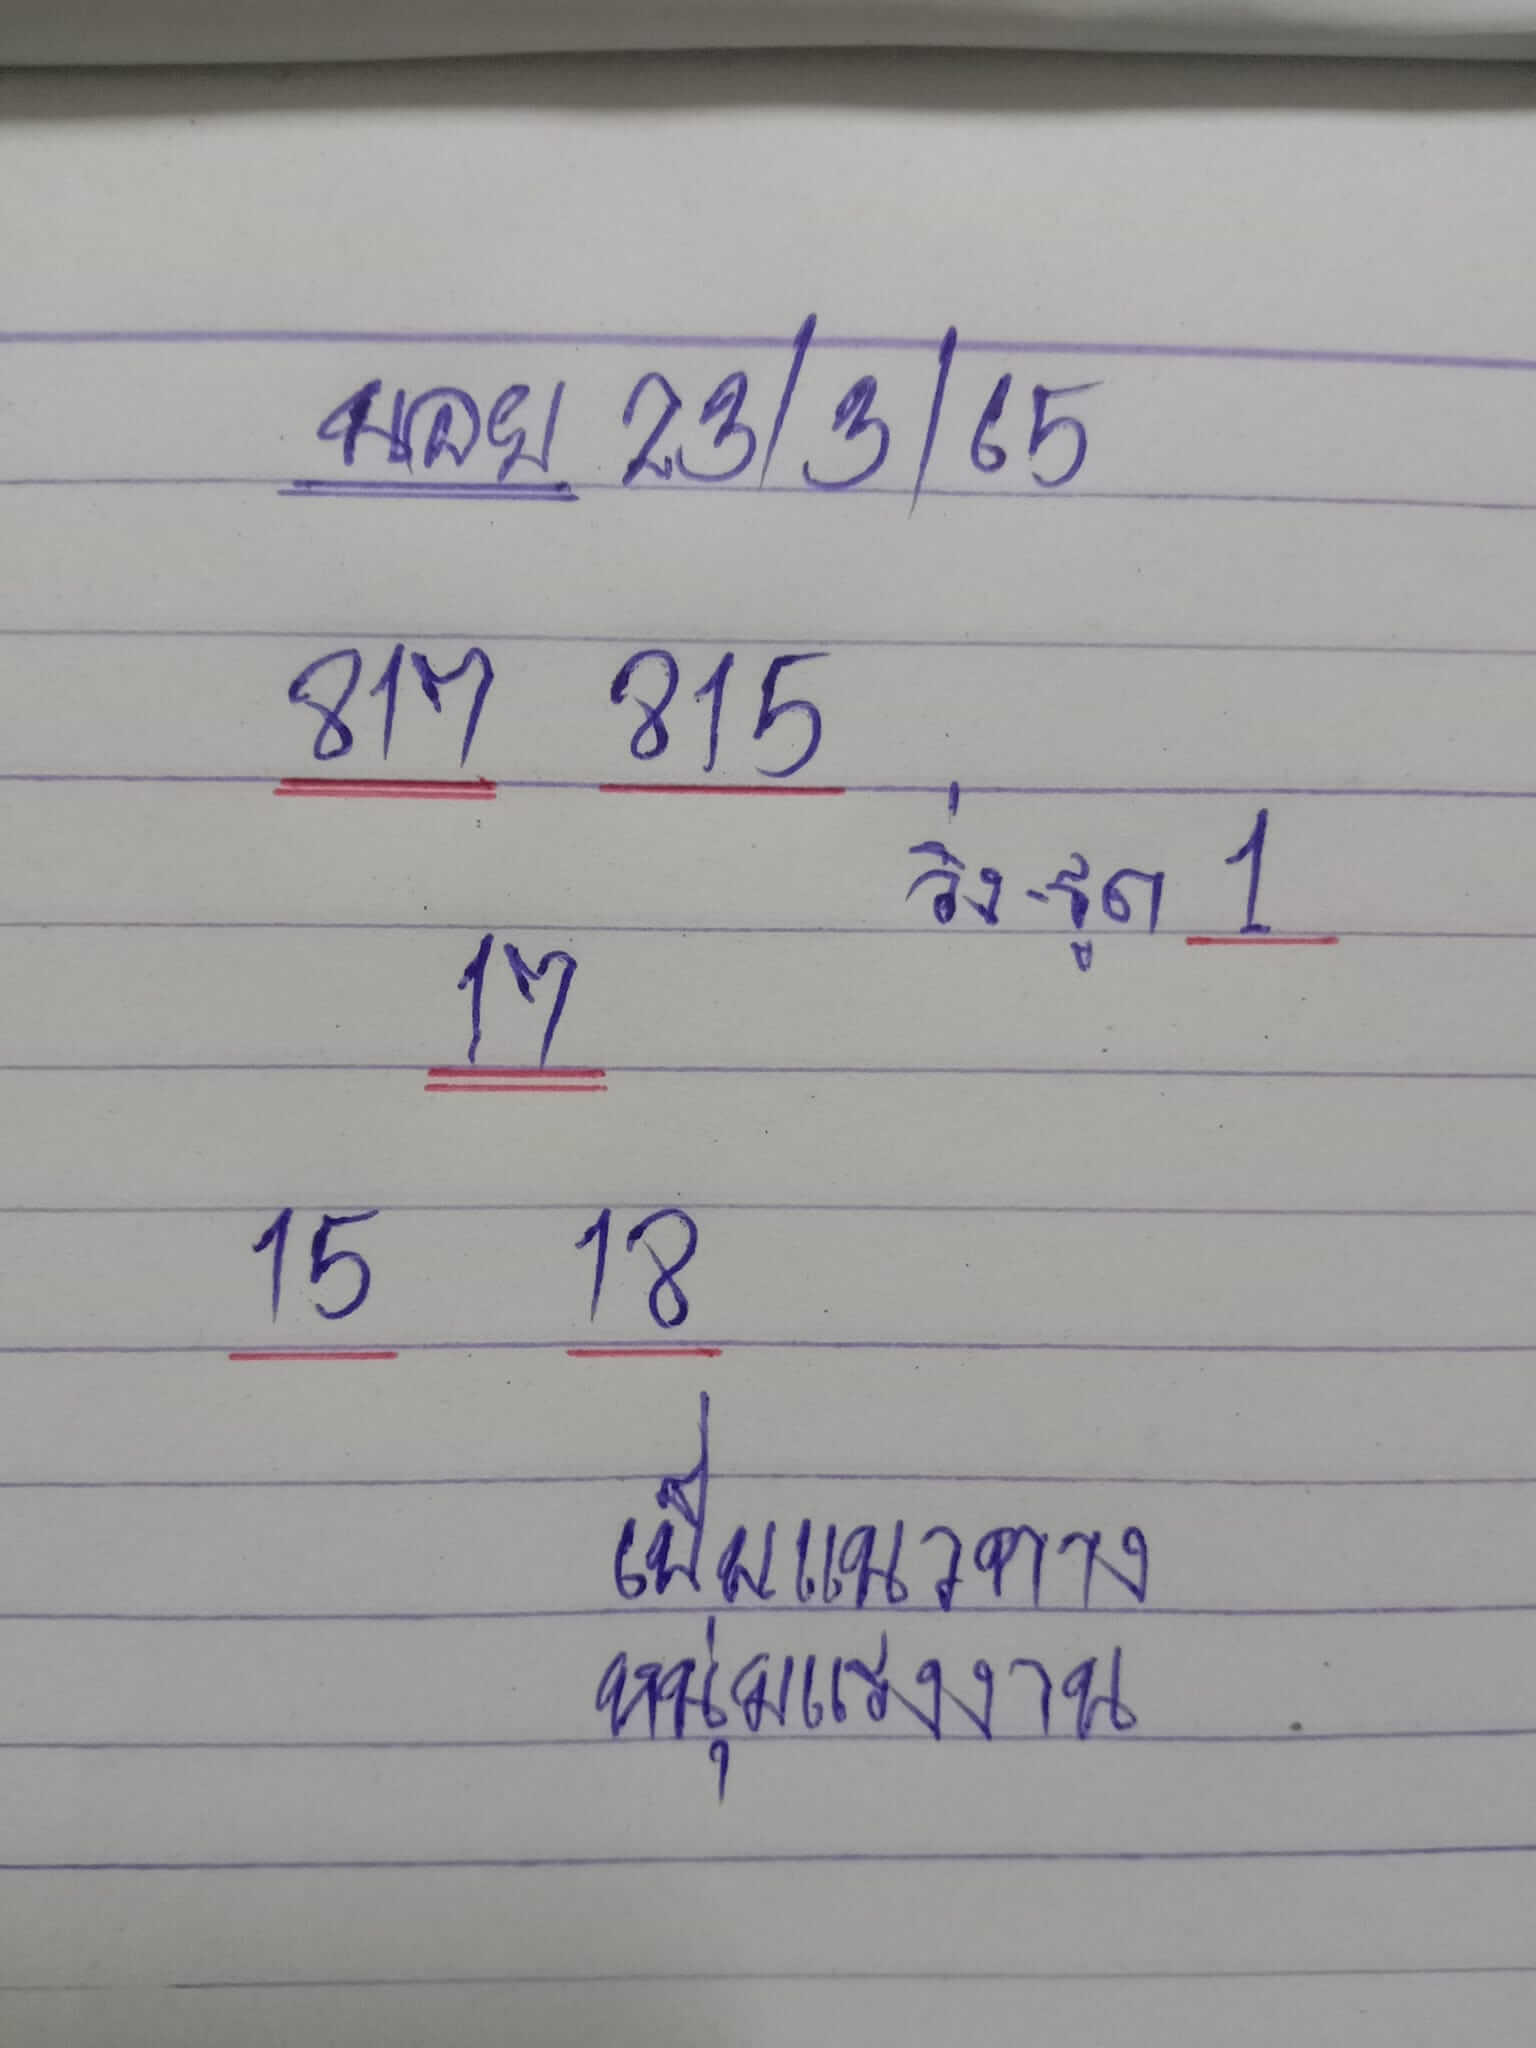 นอย 23/3/65
817 815
วิ่ง-รูด 1
17
15 18
เป็นแนวทาง
หนุ่มแรงงาน